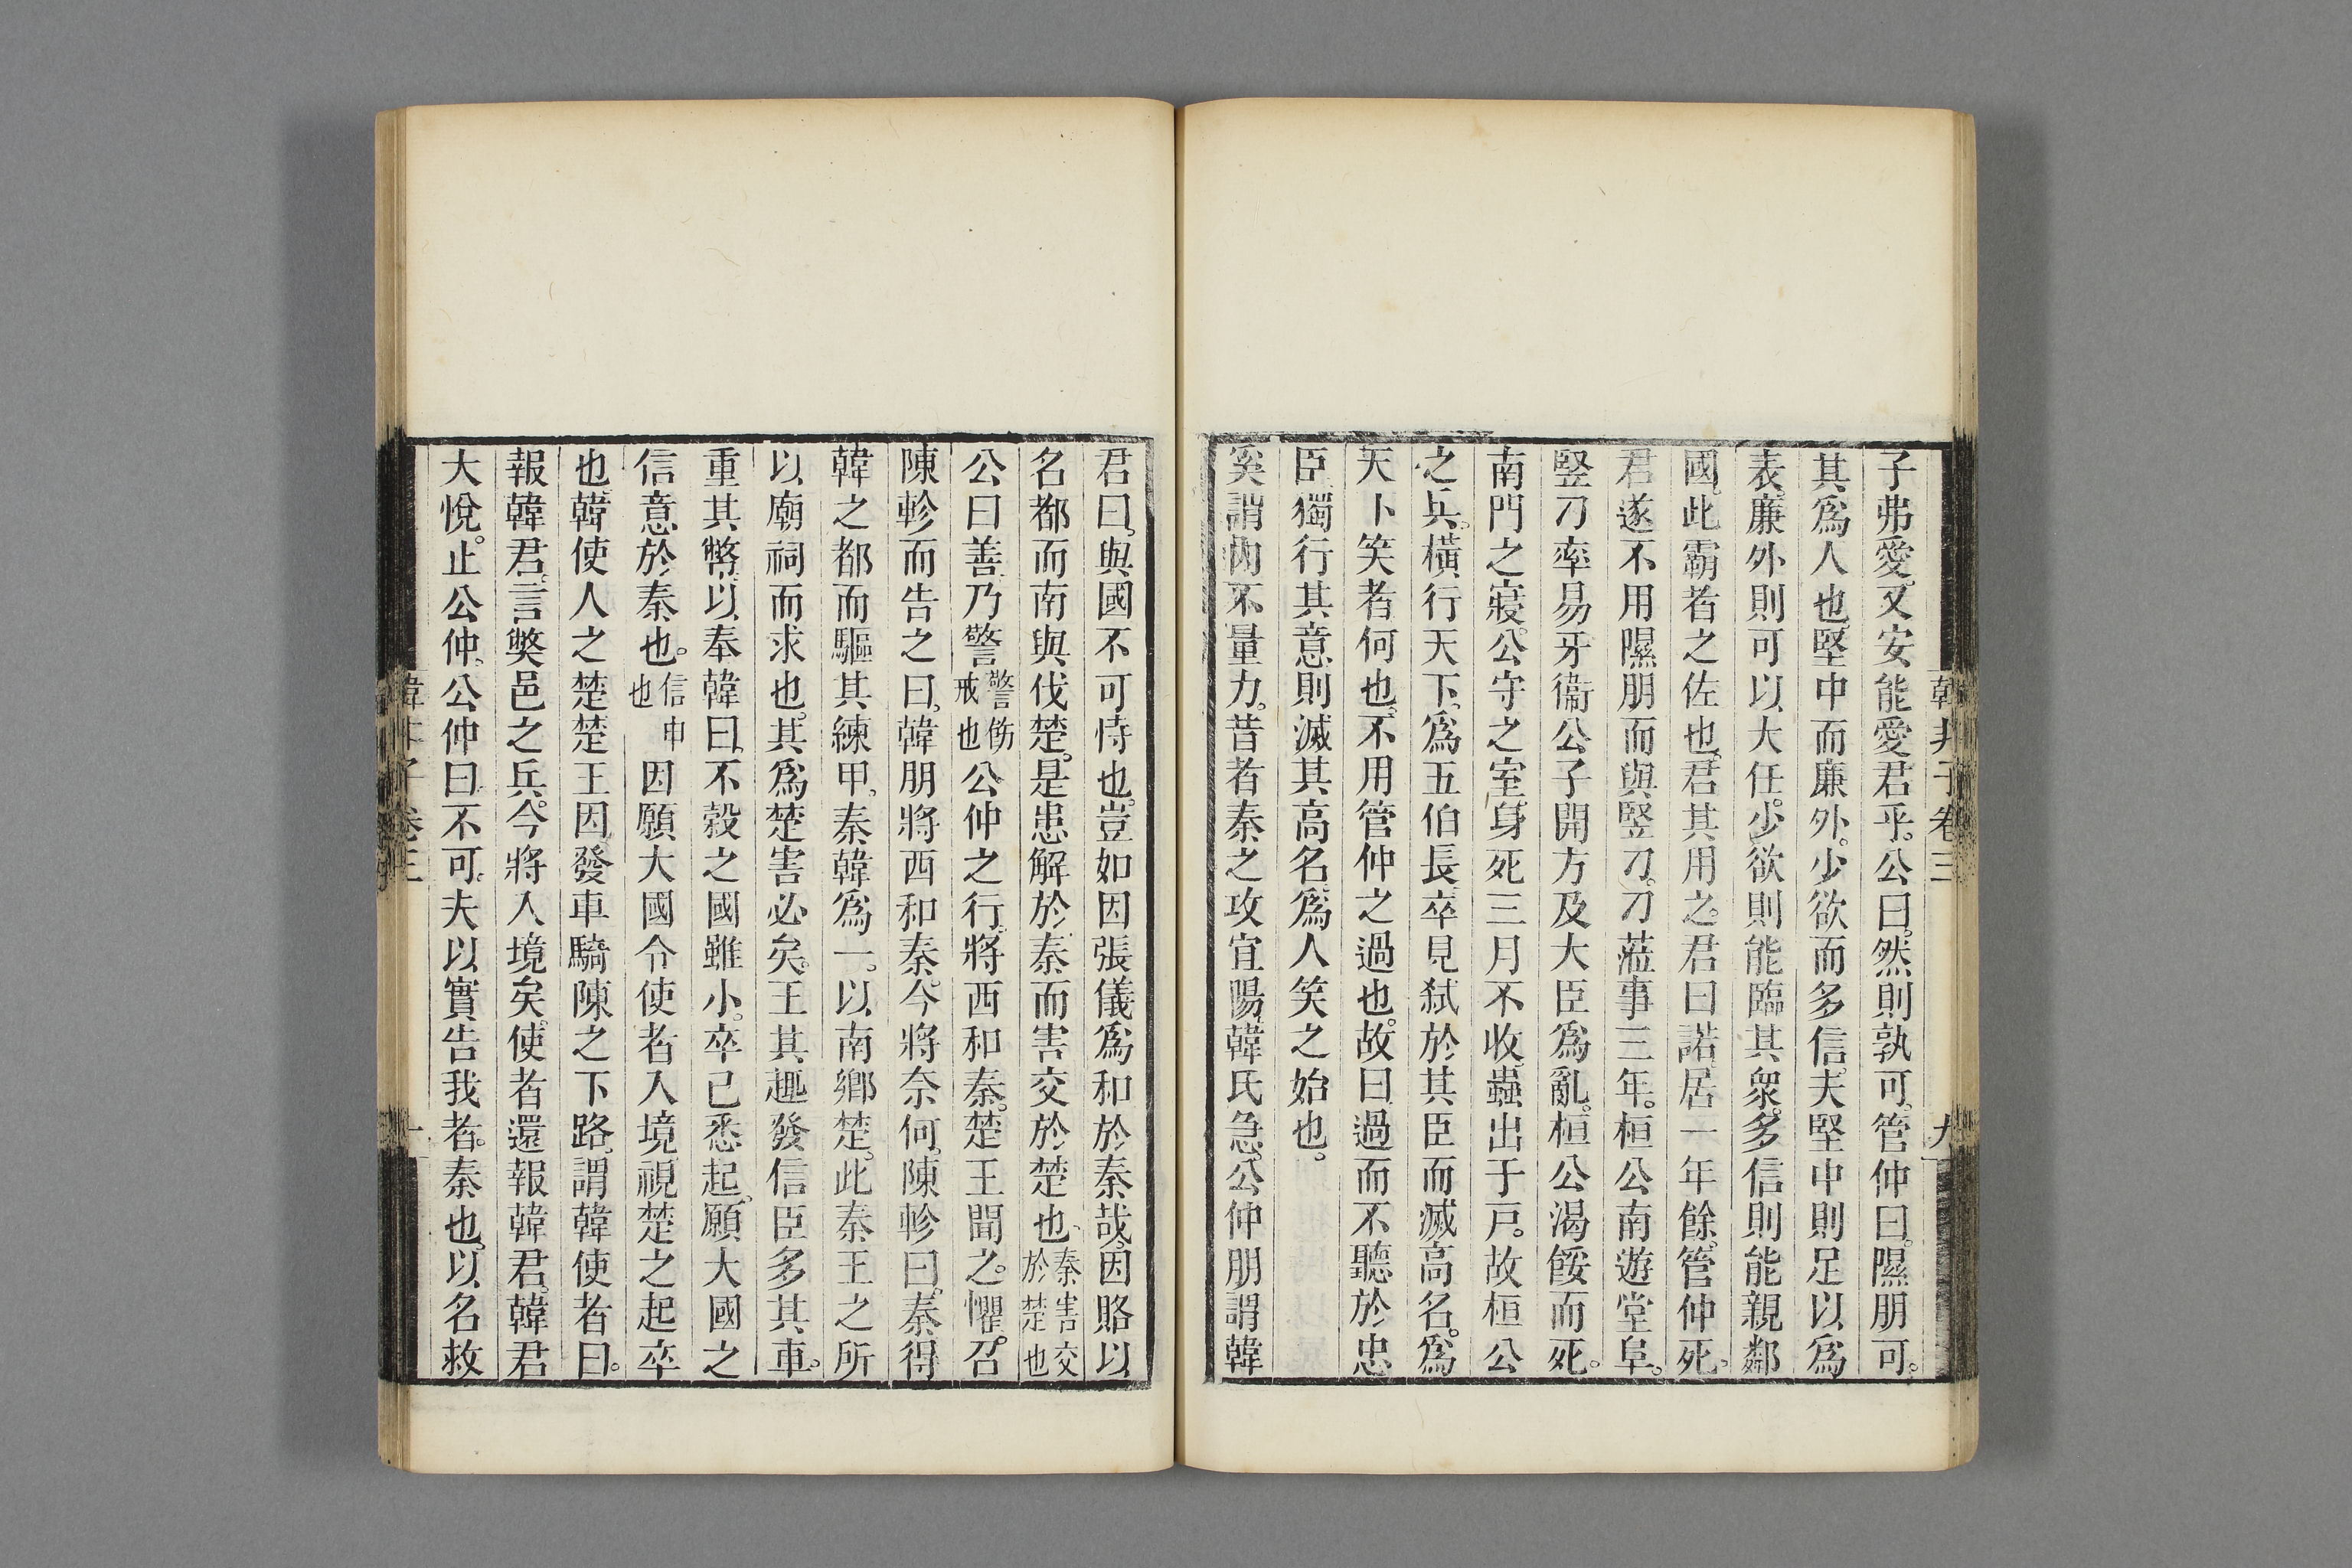 子弗愛。又安能愛君乎。公曰。然則孰可。管仲曰。隰朋可。
其爲人也。堅中而廉外。少欲而多信。夫堅中則足以爲
表。廉外則可以大任。少欲則能臨其衆。多信則能親鄰
國。此霸者之佐也。君其用之。君曰諾。居一年餘。管仲死。
君遂不用隰朋而與竪刀。刀蒞事三年。桓公南遊堂阜。
竪刀率易牙衞公子開方及大臣爲亂。桓公渴餒而死。
南門之寢。公守之室。身死三月不收。蟲出于戸。故桓公
之兵。橫行天下。爲五伯長。卒見弑於其臣而滅高名。爲
天下笑者何也。不用管仲之過也。故曰過而不聽於忠
臣。獨行其意。則滅其高名。爲人笑之始也。
奚謂內不量力。昔者秦之攻宜陽。韓氏急。公仲朋謂韓
韓非子卷三
九
君曰。與國不可恃也。豈如因張儀爲和於秦哉。因賂以
名都而南與伐楚。是患解於秦而害交於楚也。秦害交於楚也
公曰善。乃警警飭戒也公仲之行。將西和秦。楚王聞之。懼。召
陳軫而告之曰。韓朋將西和秦。今將奈何。陳軫曰。秦得
韓之都而驅其練甲。秦韓爲一。以南鄕楚。此秦王之所
以廟祠而求也。其爲楚害必矣。王其趣發信臣多其車。
重其幣。以奉韓曰。不穀之國雖小。卒已悉起。願大國之
信意於秦也。信申也因願大國令使者入境視楚之起卒
也。韓使人之楚。楚王因發車騎陳之下路。謂韓使者曰。
報韓君。言弊邑之兵。今將入境矣。使者還報韓君。韓君
大悅。止公仲。公仲曰。不可。夫以實告我者。秦也。以名救
韓非子卷三